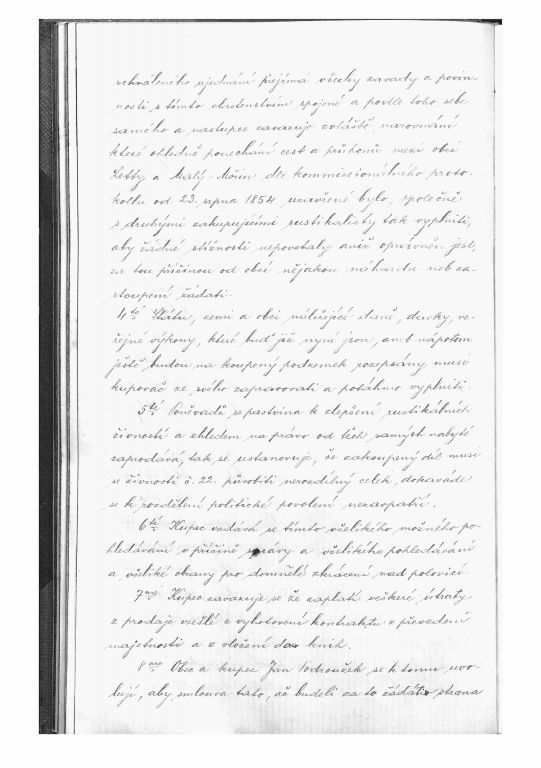 schváleného ujednání přejímá všecky zavady a povin-
nosti s tímto vlastenstvím spojené a podle toho sebe
samého a nastupce zavazuje zvláště narovnání
které ohledně ponechání cest a průhonů mezi obcí
Letty a Malý-Mořín dle kommissionálního proto-
kollu od 23. srpna 1854 uzavřené bylo, společně
s druhými zakupujícími rustikalisty tak vyplniti,
aby žádné stížnosti nepovstaly aniž oprávněn jest,
za tou příčinou od obcí nějakou náhradu neb za-
stoupení žádati.
4té Státu, zemi a obci náležející daně, davky, ve-
řejné výkony, které buď již nyní jsou, aneb nápotom
ještě budou na koupený pozemek rozepsány musí
kupovač ze svého zapravovati a potáhmo vyplniti.
5té Poněvadž se pastvina k zlepšení rustikálních
živností a zhledem na právo od těch samých nabyté
zaprodává, tak se ustanovuje, že zakoupený díl musí
se živností č. 22. působiti nerozdílný celek, dokaváde
se k rozdělení politické povolení nezaopatří.
6té Kupec vzdává se tímto všelikého možného po-
hledávání v příčině správy a všelikého pohledávání
a všeliké obrany pro domnělé zkrácení nad polovici.
7mé Kupec zavazuje se že zaplatí veškeré útraty
z prodaje vzešlé z vyhotovení kontraktu z převedení
majetnosti a z vložení do knih.
8mé Obec a kupec Jan Podroužek se k tomu uvo-
lují, aby smlouva tato, ač budeli za to žádáti strana